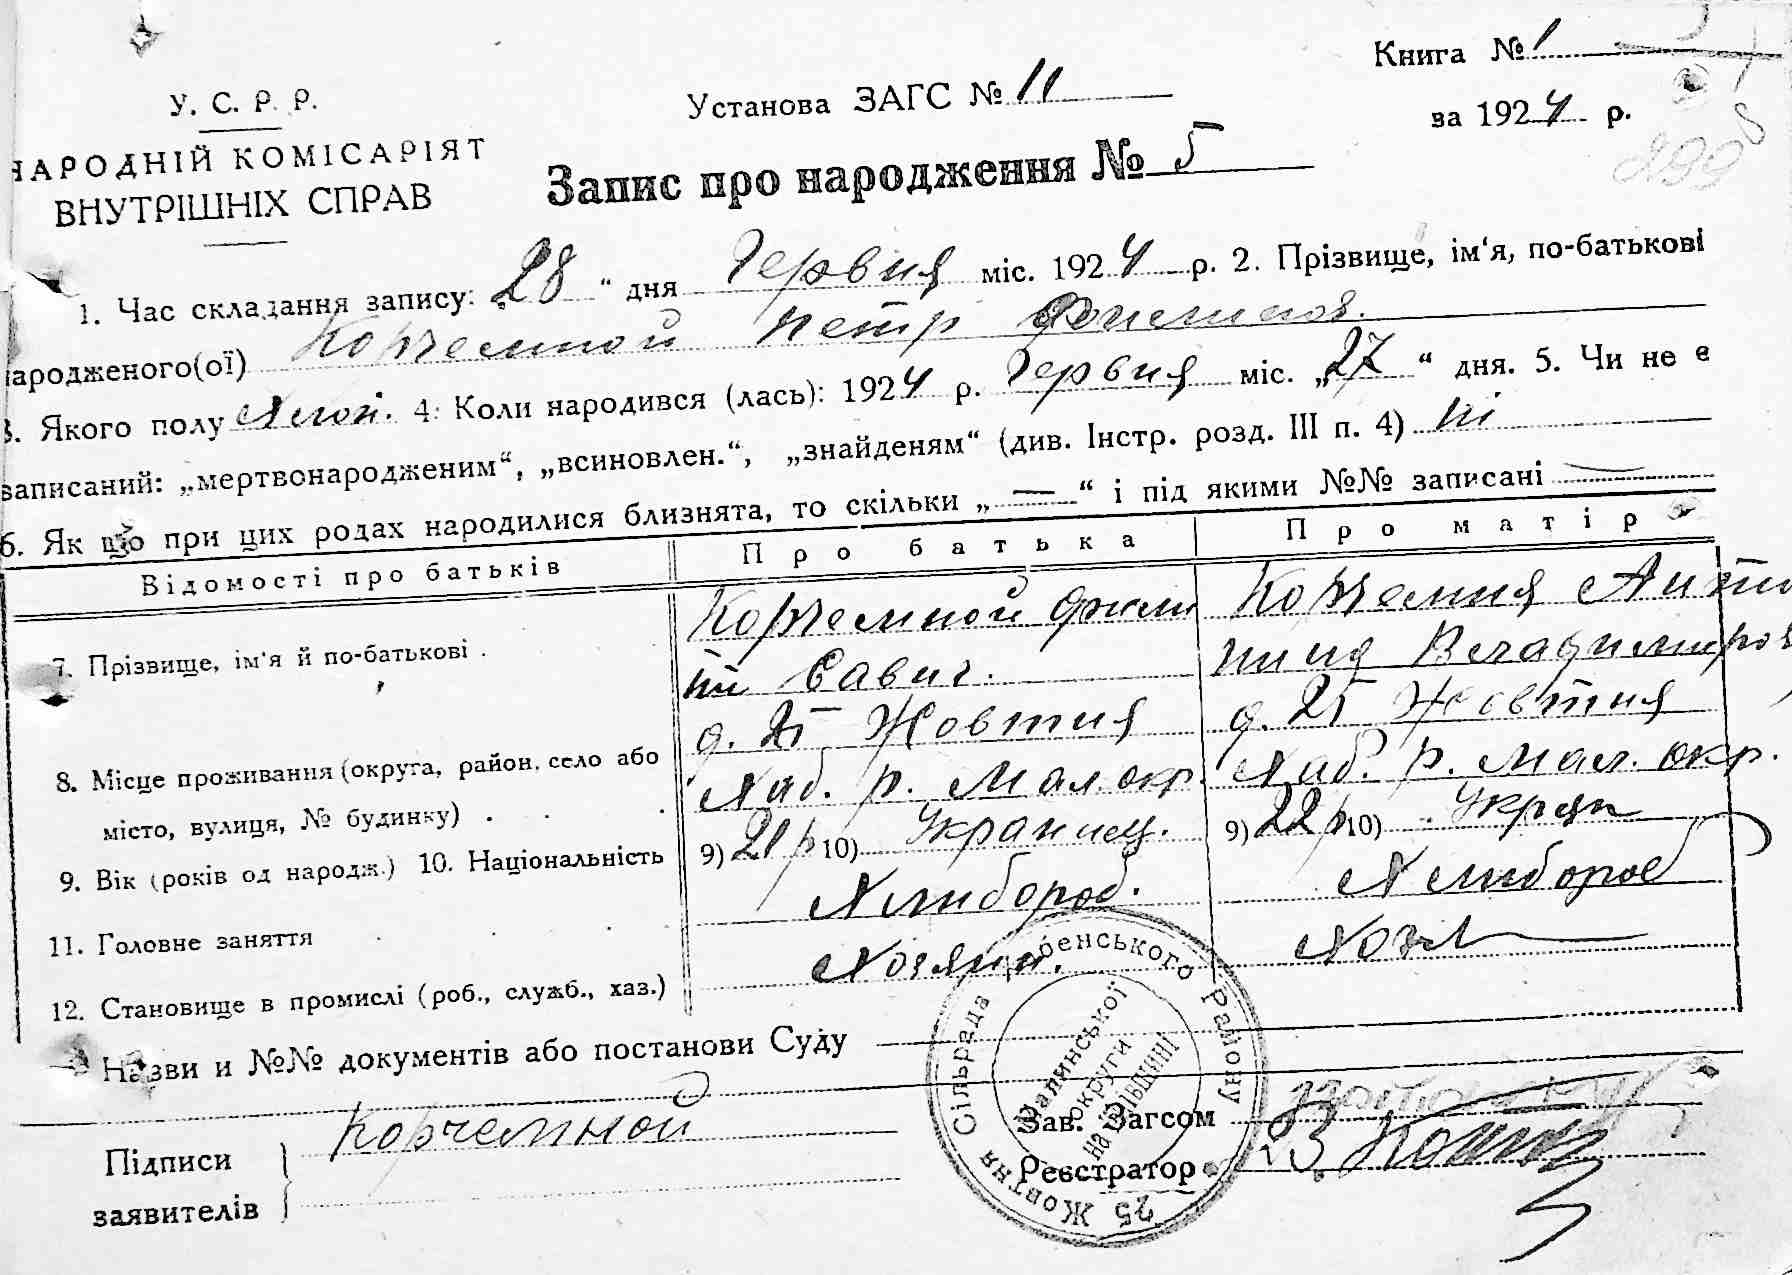 Книга № 1
У. С. Р. Р.
Установа ЗАГС № 11
за 1924 р.
НАРОДНІЙ КОМІСАРІЯТ
ВНУТРІШНІХ СПРАВ
Запис про народження № 5
299
1. Час складання запису: „28“ дня Червня міс. 1924 р. 2. Прізвище, ім‘я, по-батькові
народженого(ої) Корчемной Петр Филипов.
3. Якого полу 4. Коли народився (лась): 1924 р. Червня міс. „27“ дня. 5. Чи не є
записаний: „мертвонародженим“, „всиновлен.“, „знайденям“ (див. Інстр. розд. III п. 4) ні
6. Як що при цих родах народилися близнята, то скільки „—“ і під якими №№ записані —
Відомості про батьків
Про батька
Про матір
7. Прізвище, ім‘я й по-батькові .
Корчемной Фили
пп Савич.
Корчемня Анто
нина Владимиров
8. Місце проживання (округа, район, село або
місто, вулиця, № будинку) . . .
д. 25 Жовтня
Хаб. р. Мал. окр.
д. 25 Жовтня
Хаб. р. Мал. окр.
9. Вік (років од народж.) 10. Національність
9) 21 р 10) Украинец.
9) 22 р 10) Украин
11. Головне заняття . . .
Хлибороб.
Хлибороб
12. Становище в промислі (роб., служб., хаз.)
Хозяин.
Хоз
Назви и №№ документів або постанови Суду
Підписи
заявителів
Корчемной
Зав. Загсом
Реєстратор
Сільрада Хабенського Району
25 Жовтня
Малинської
округи
на Київщині